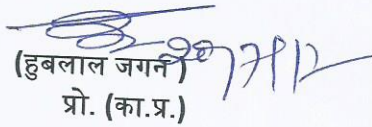 (हुबलाल जगर्न)
प्रो. (का.प्र.)